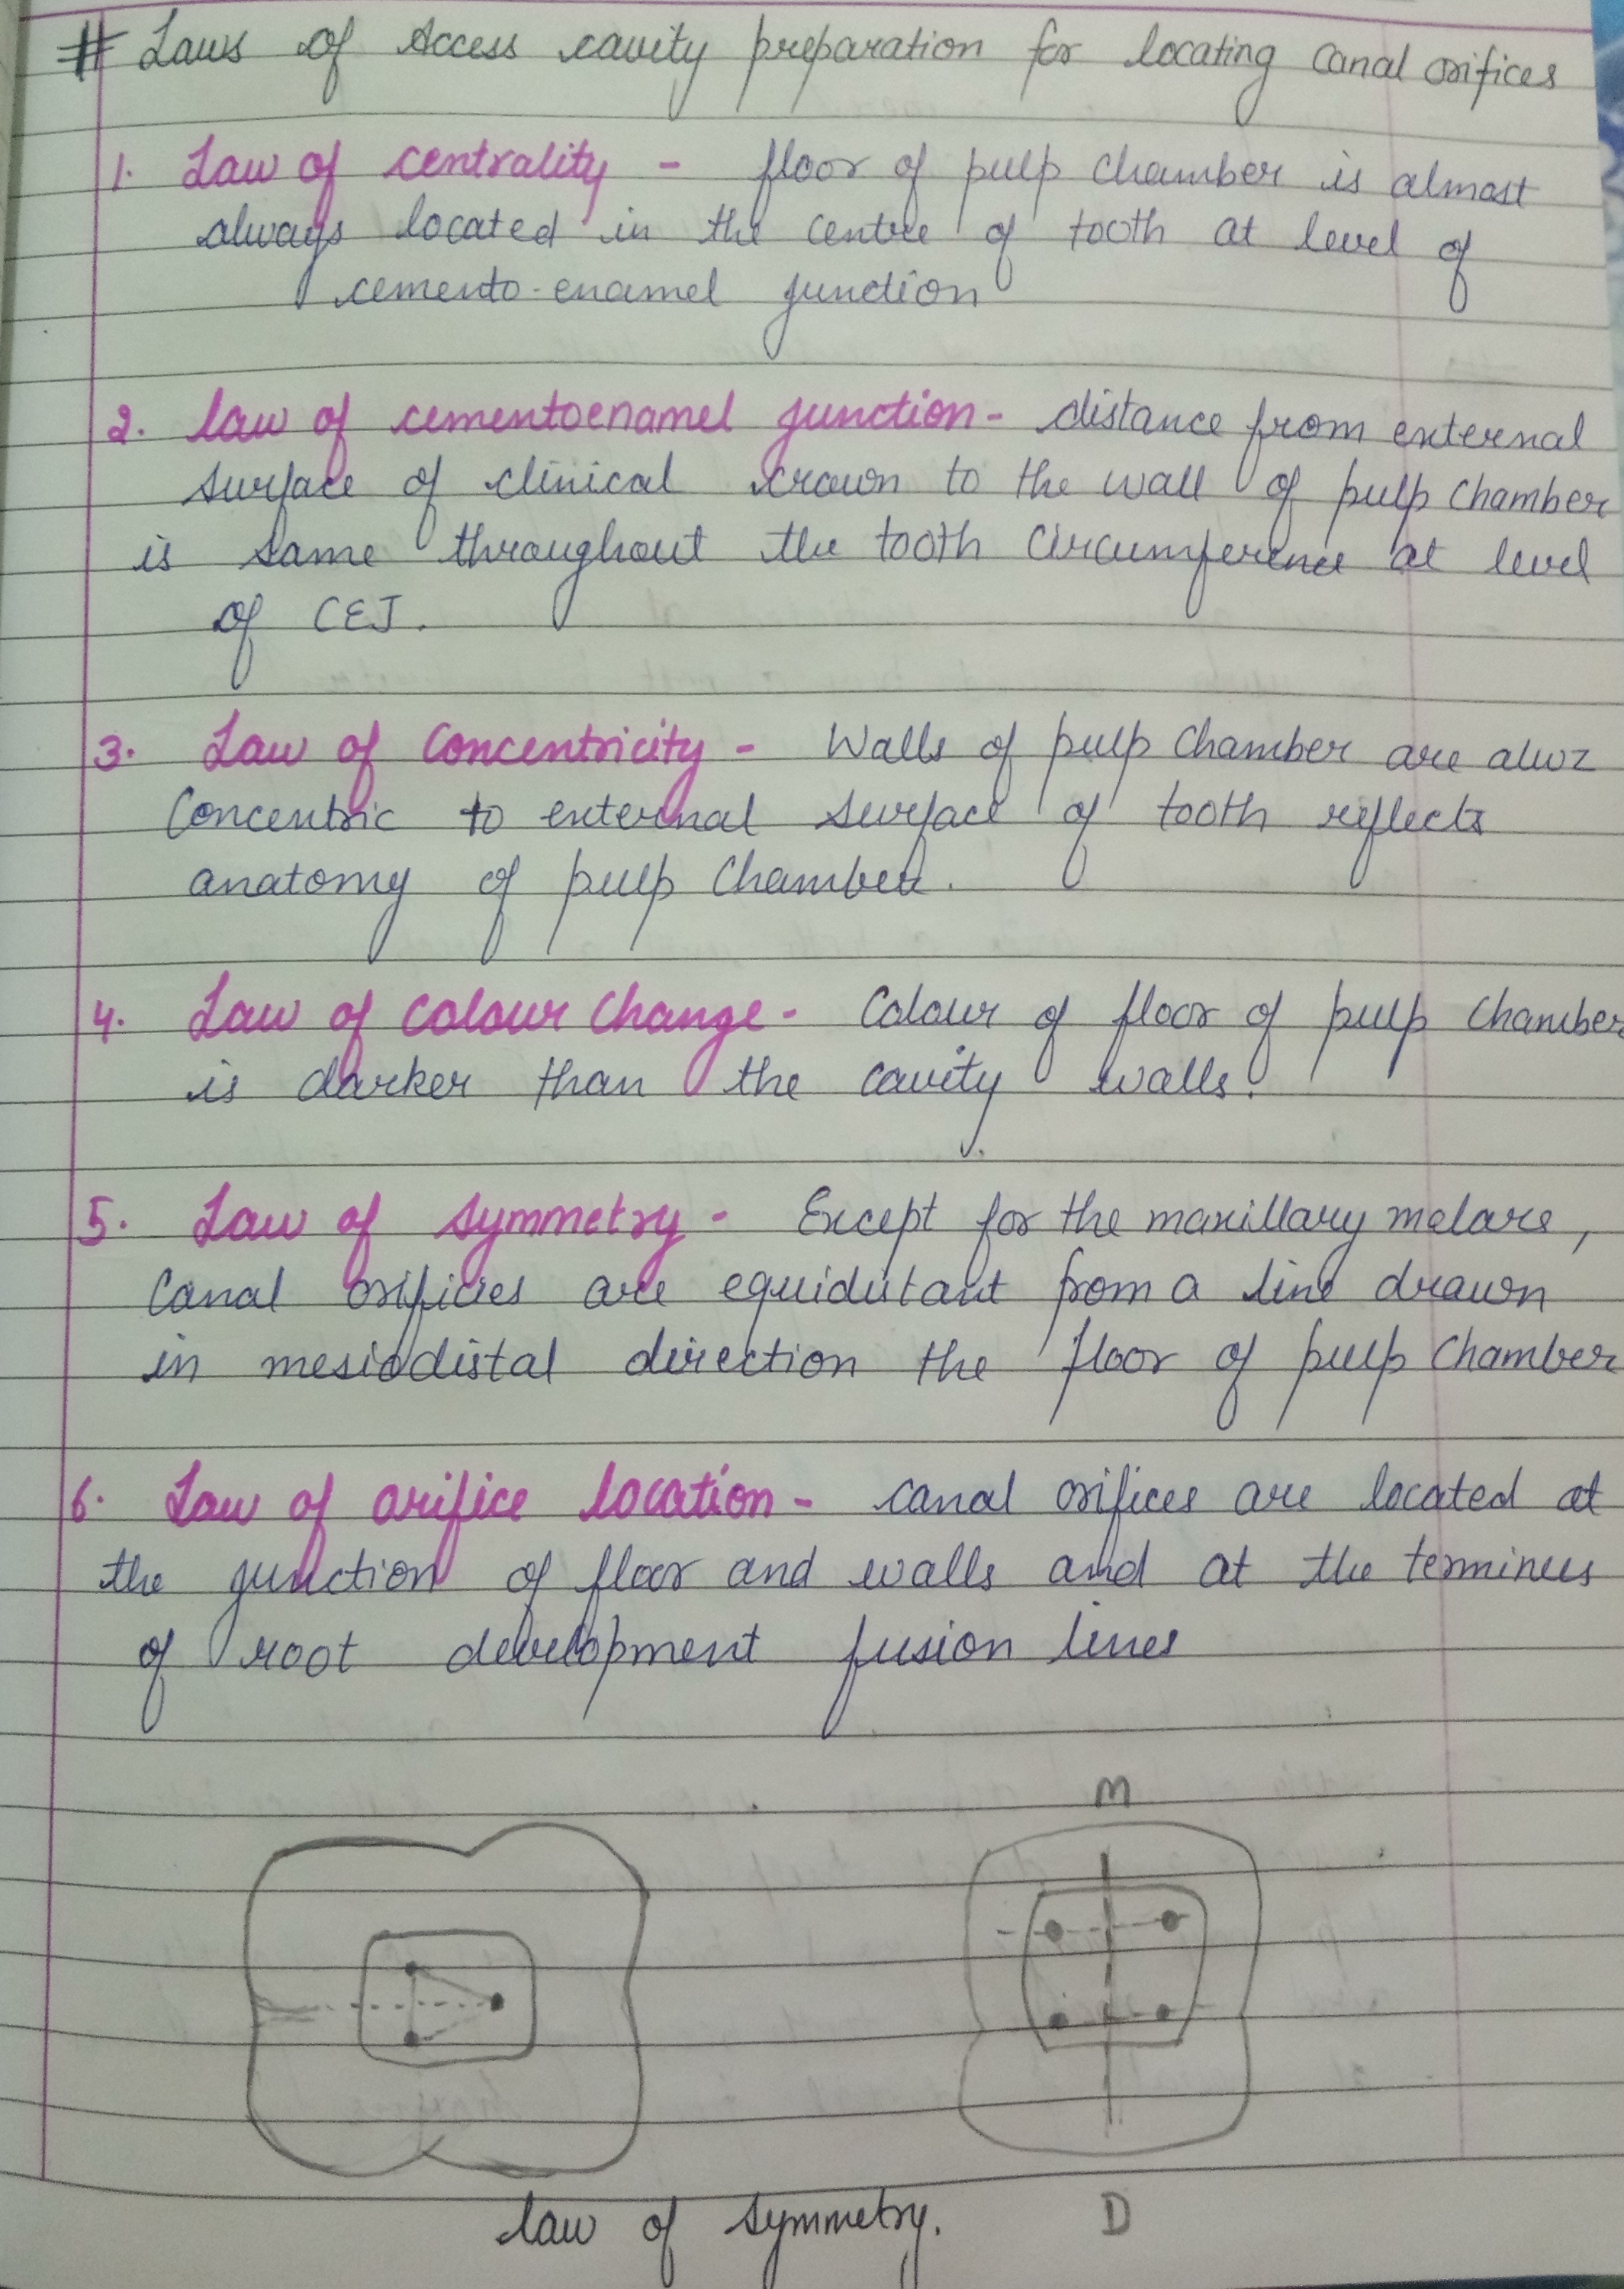 # Laws of Access cavity preparation for locating canal orifices
1. Law of centrality - floor of pulp chamber is almost
always located in the centre of tooth at level of
cemento-enamel junction
2. law of cementoenamel junction - distance from external
surface of clinical crown to the wall of pulp chamber
is same throughout the tooth circumference at level
of CEJ.
3. Law of Concentricity - Walls of pulp chamber are alwz
Concentric to external surface of tooth reflects
anatomy of pulp chamber.
4. Law of Colour Change - Colour of floor of pulp chamber
is darker than the cavity walls.
5. Law of symmetry - Except for the maxillary molars,
Canal orifices are equidistant from a line drawn
in mesiodistal direction the floor of pulp chamber
6. Law of orifice location - canal orifices are located at
the junction of floor and walls and at the terminus
of root development fusion lines
M
law of symmetry.
D